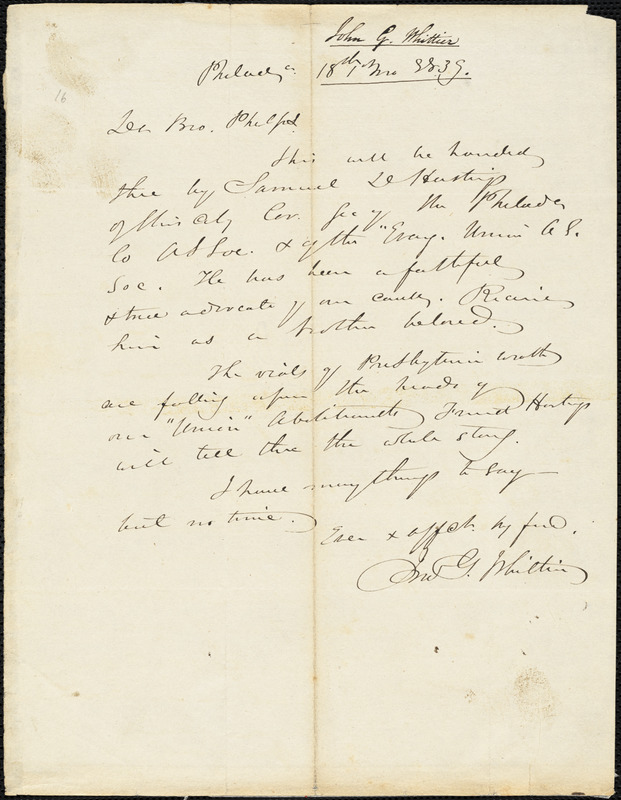 John G. Whittier
Philada. 18th 1 Mo 1839.
16
Dr Bro. Phelps.
This will be handed
thee by Samuel D Hastings
of this city Cor. Sec of the Philada
Co A S Soc. & of the "Evang. Union A. S.
Soc. He has been a faithful
& true advocate of our cause. Receive
him as a brother beloved.
The vials of Presbyterian wrath
are falling upon the heads of
our "Union" Abolitionists. Friend Hastings
will tell thee the whole story.
I have many things to say
but no time.
Ever & affect. thy frd.
Jno G. Whittier